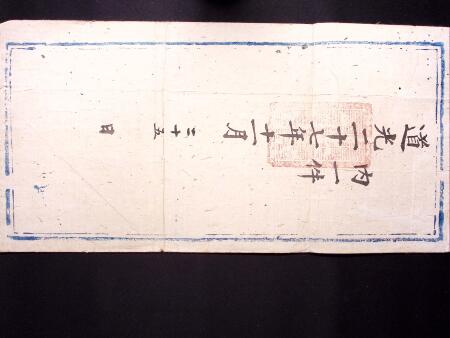 内一件
道光二十七年十一月二十五日